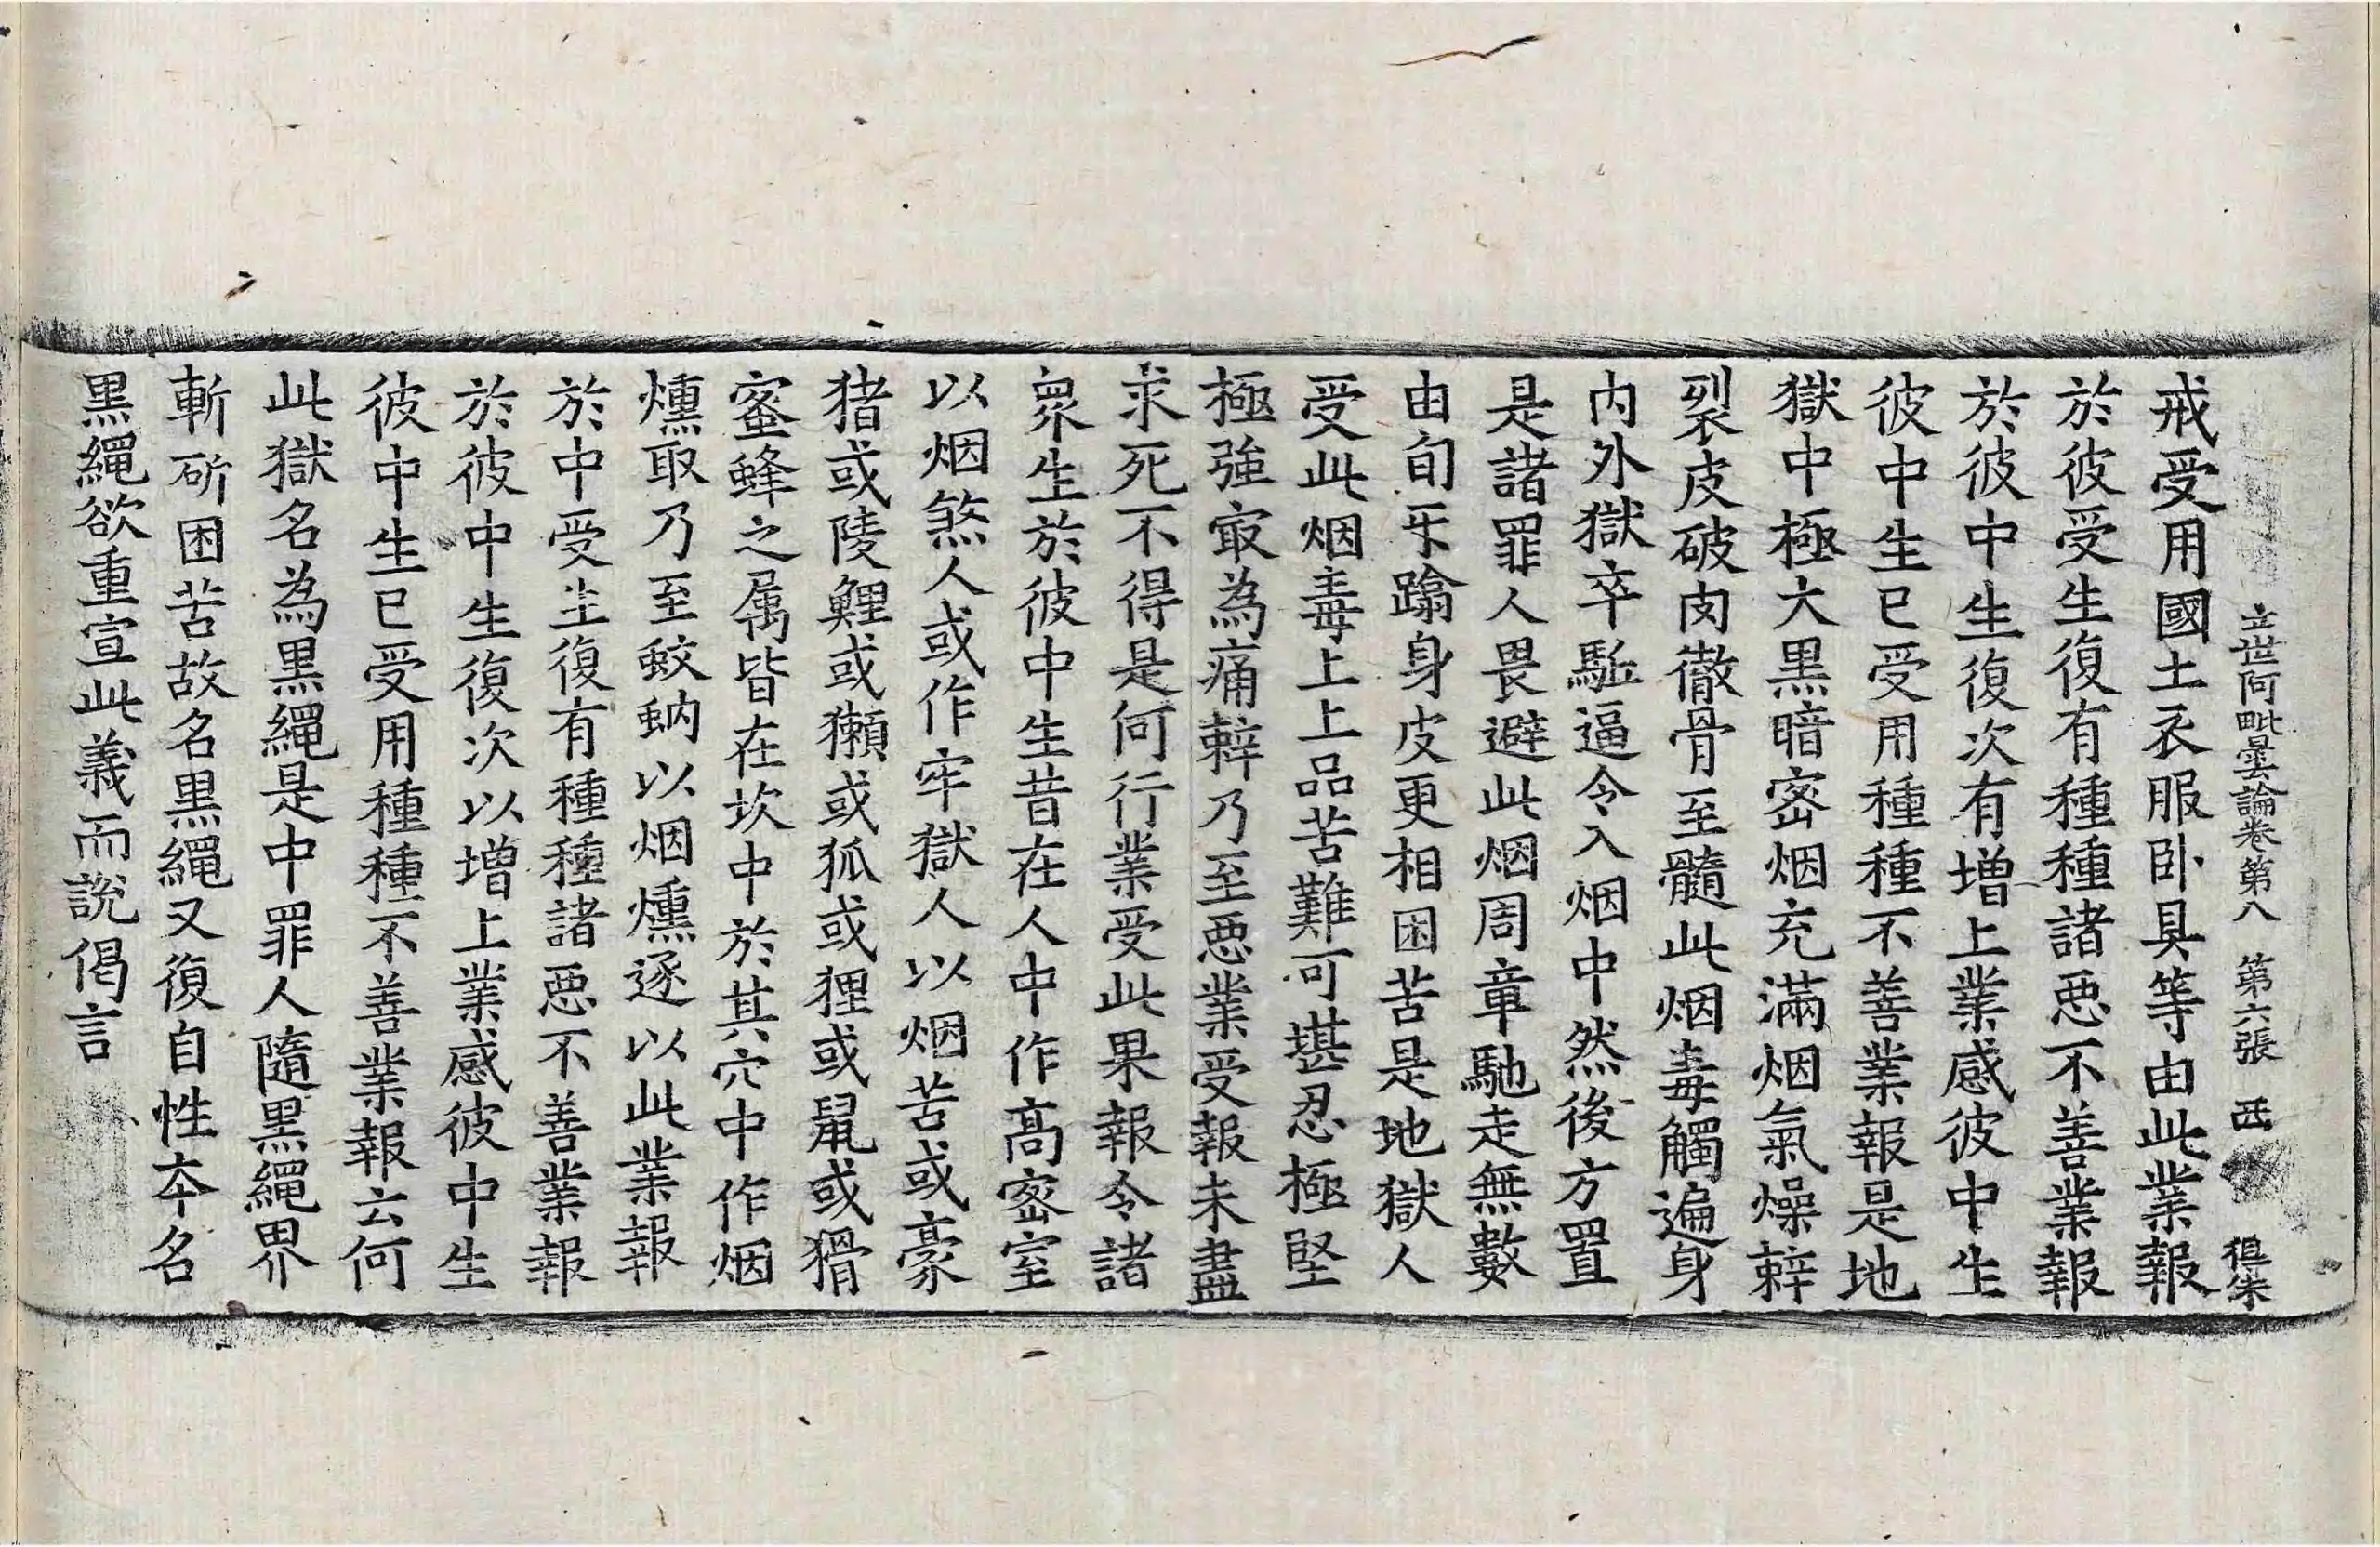 立世阿毗曇論卷第八 第六張
戒受用國土衣服卧具等由此業報
於彼受生復有種種諸惡不善業報
於彼中生復次有增上業感彼中生
彼中生已受用種種不善業報是地
獄中極大黑暗密烟充滿烟氣燥辢
裂皮破肉徹骨至髓此烟毒觸遍身
内外獄卒駈逼令入烟中然後方置
是諸罪人畏避此烟周章馳走無數
由旬乐蹹身皮更相困苦是地獄人
受此烟毒上上品苦難可堪忍極堅
極強㝡為痛辢乃至惡業受報未盡
求死不得是何行業受此果報令諸
衆生於彼中生昔在人中作高密室
以烟煞人或作牢獄人以烟苦或豪
猪或陵鯉或獺或狐或狸或鼠或猾
蜜蜂之属皆在坎中於其穴中作烟
燻取乃至蛟蚋以烟燻逐以此業報
於中受生復有種種諸惡不善業報
於彼中生復次以增上業感彼中生
彼中生已受用種種不善業報云何
此獄名為黑繩是中罪人隨黑繩界
斬斫困苦故名黑繩又復自性夲名
黑繩欲重宣此義而說偈言